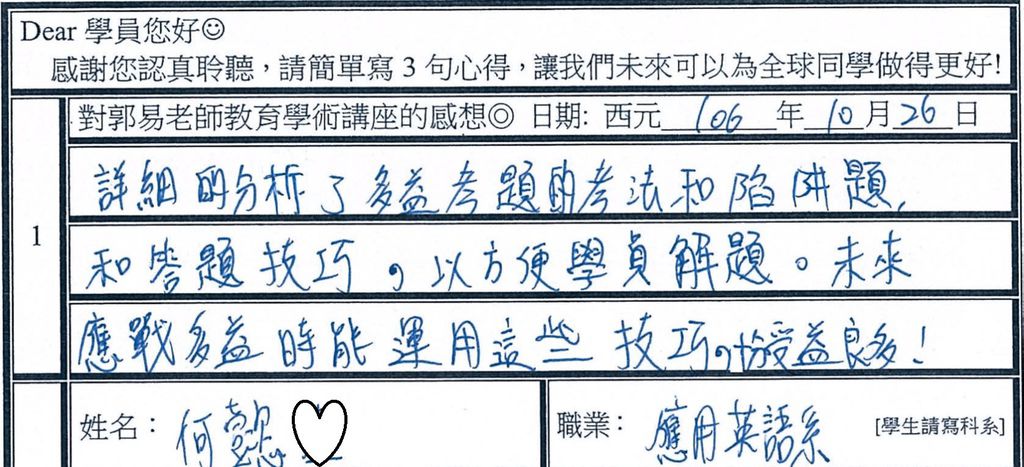 Dear 學員您好☺
感謝您認真聆聽，請簡單寫 3 句心得，讓我們未來可以為全球同學做得更好!
對郭易老師教育學術講座的感想◎ 日期: 西元 106 年 10 月 26 日
1
詳細的分析了多益考題的考法和陷阱題,
和答題技巧，以方便學員解題。未來
應戰多益時能運用這些技巧，受益良多！
姓名： 何 職業： 應用英語系 [學生請寫科系]